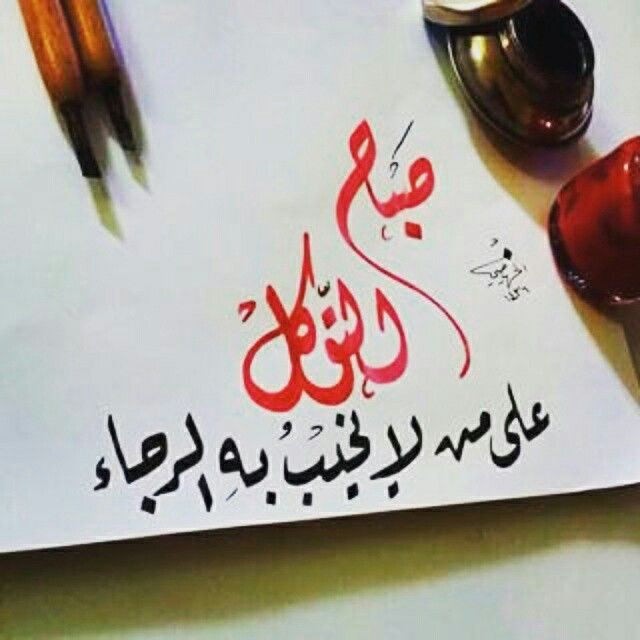 صباح
التوكل
على من لا يخيب به الرجاء